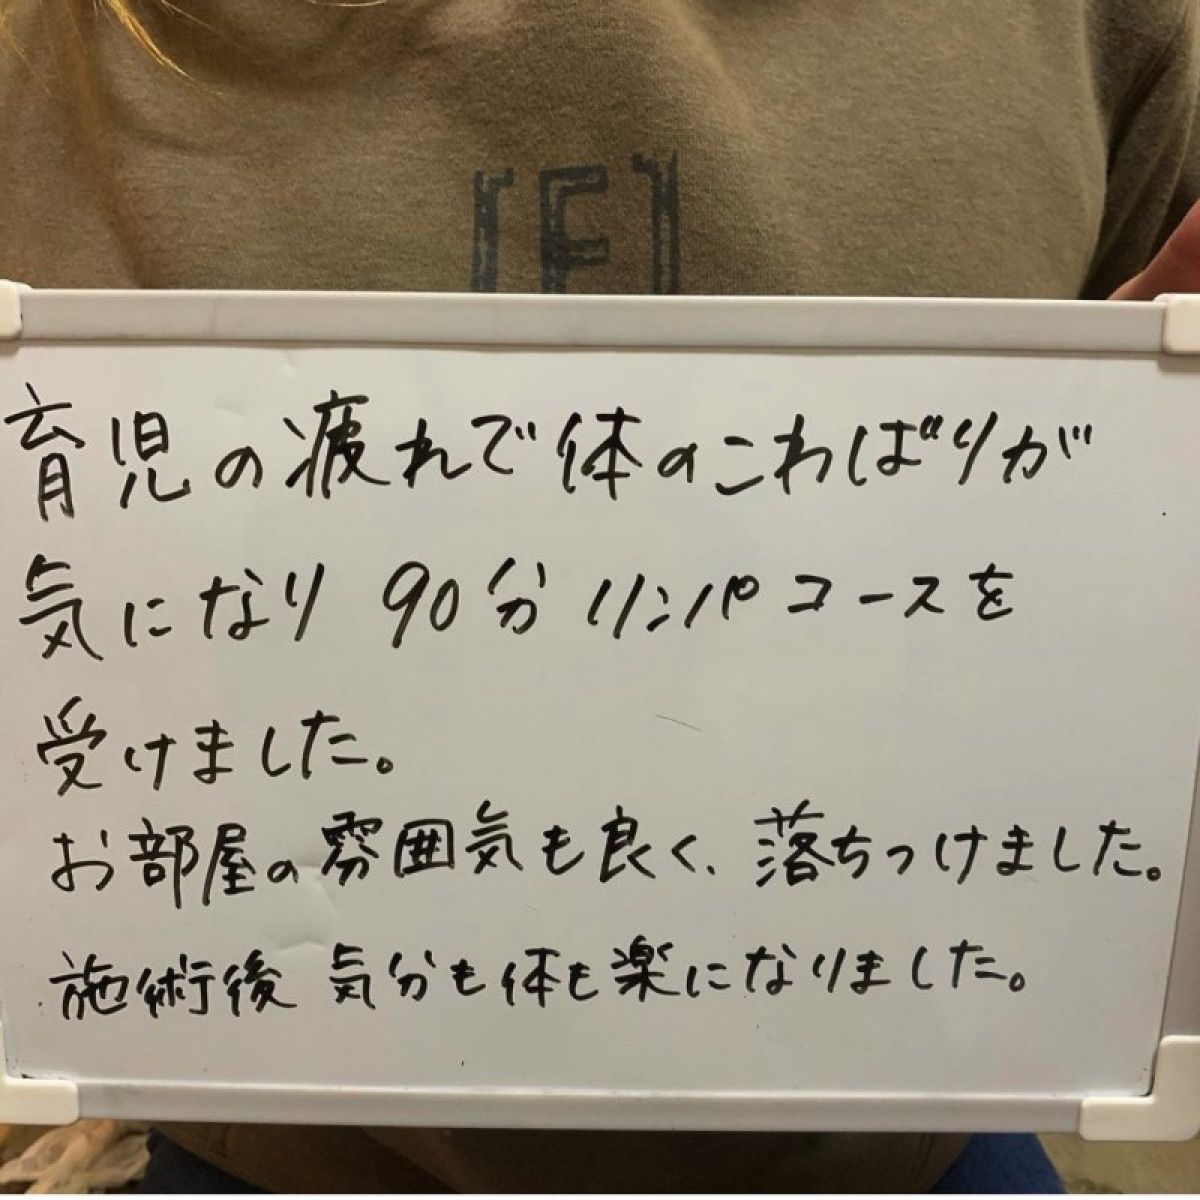 [F]
育児の疲れで体のこわばりが
気になり 90分 リンパコースを
受けました。
お部屋の雰囲気も良く、落ちつけました。
施術後 気分も体も楽になりました。